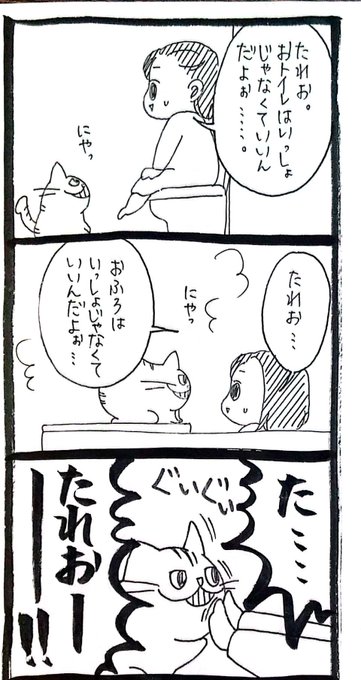 たれお。
おトイレはいっしょ
じゃなくていいん
だよぉ……。
にやっ
たれお…
にやっ
おふろは
いっしょじゃなくて
いいんだよぉ…
た……
ぐいぐい
たれおー
ー!!